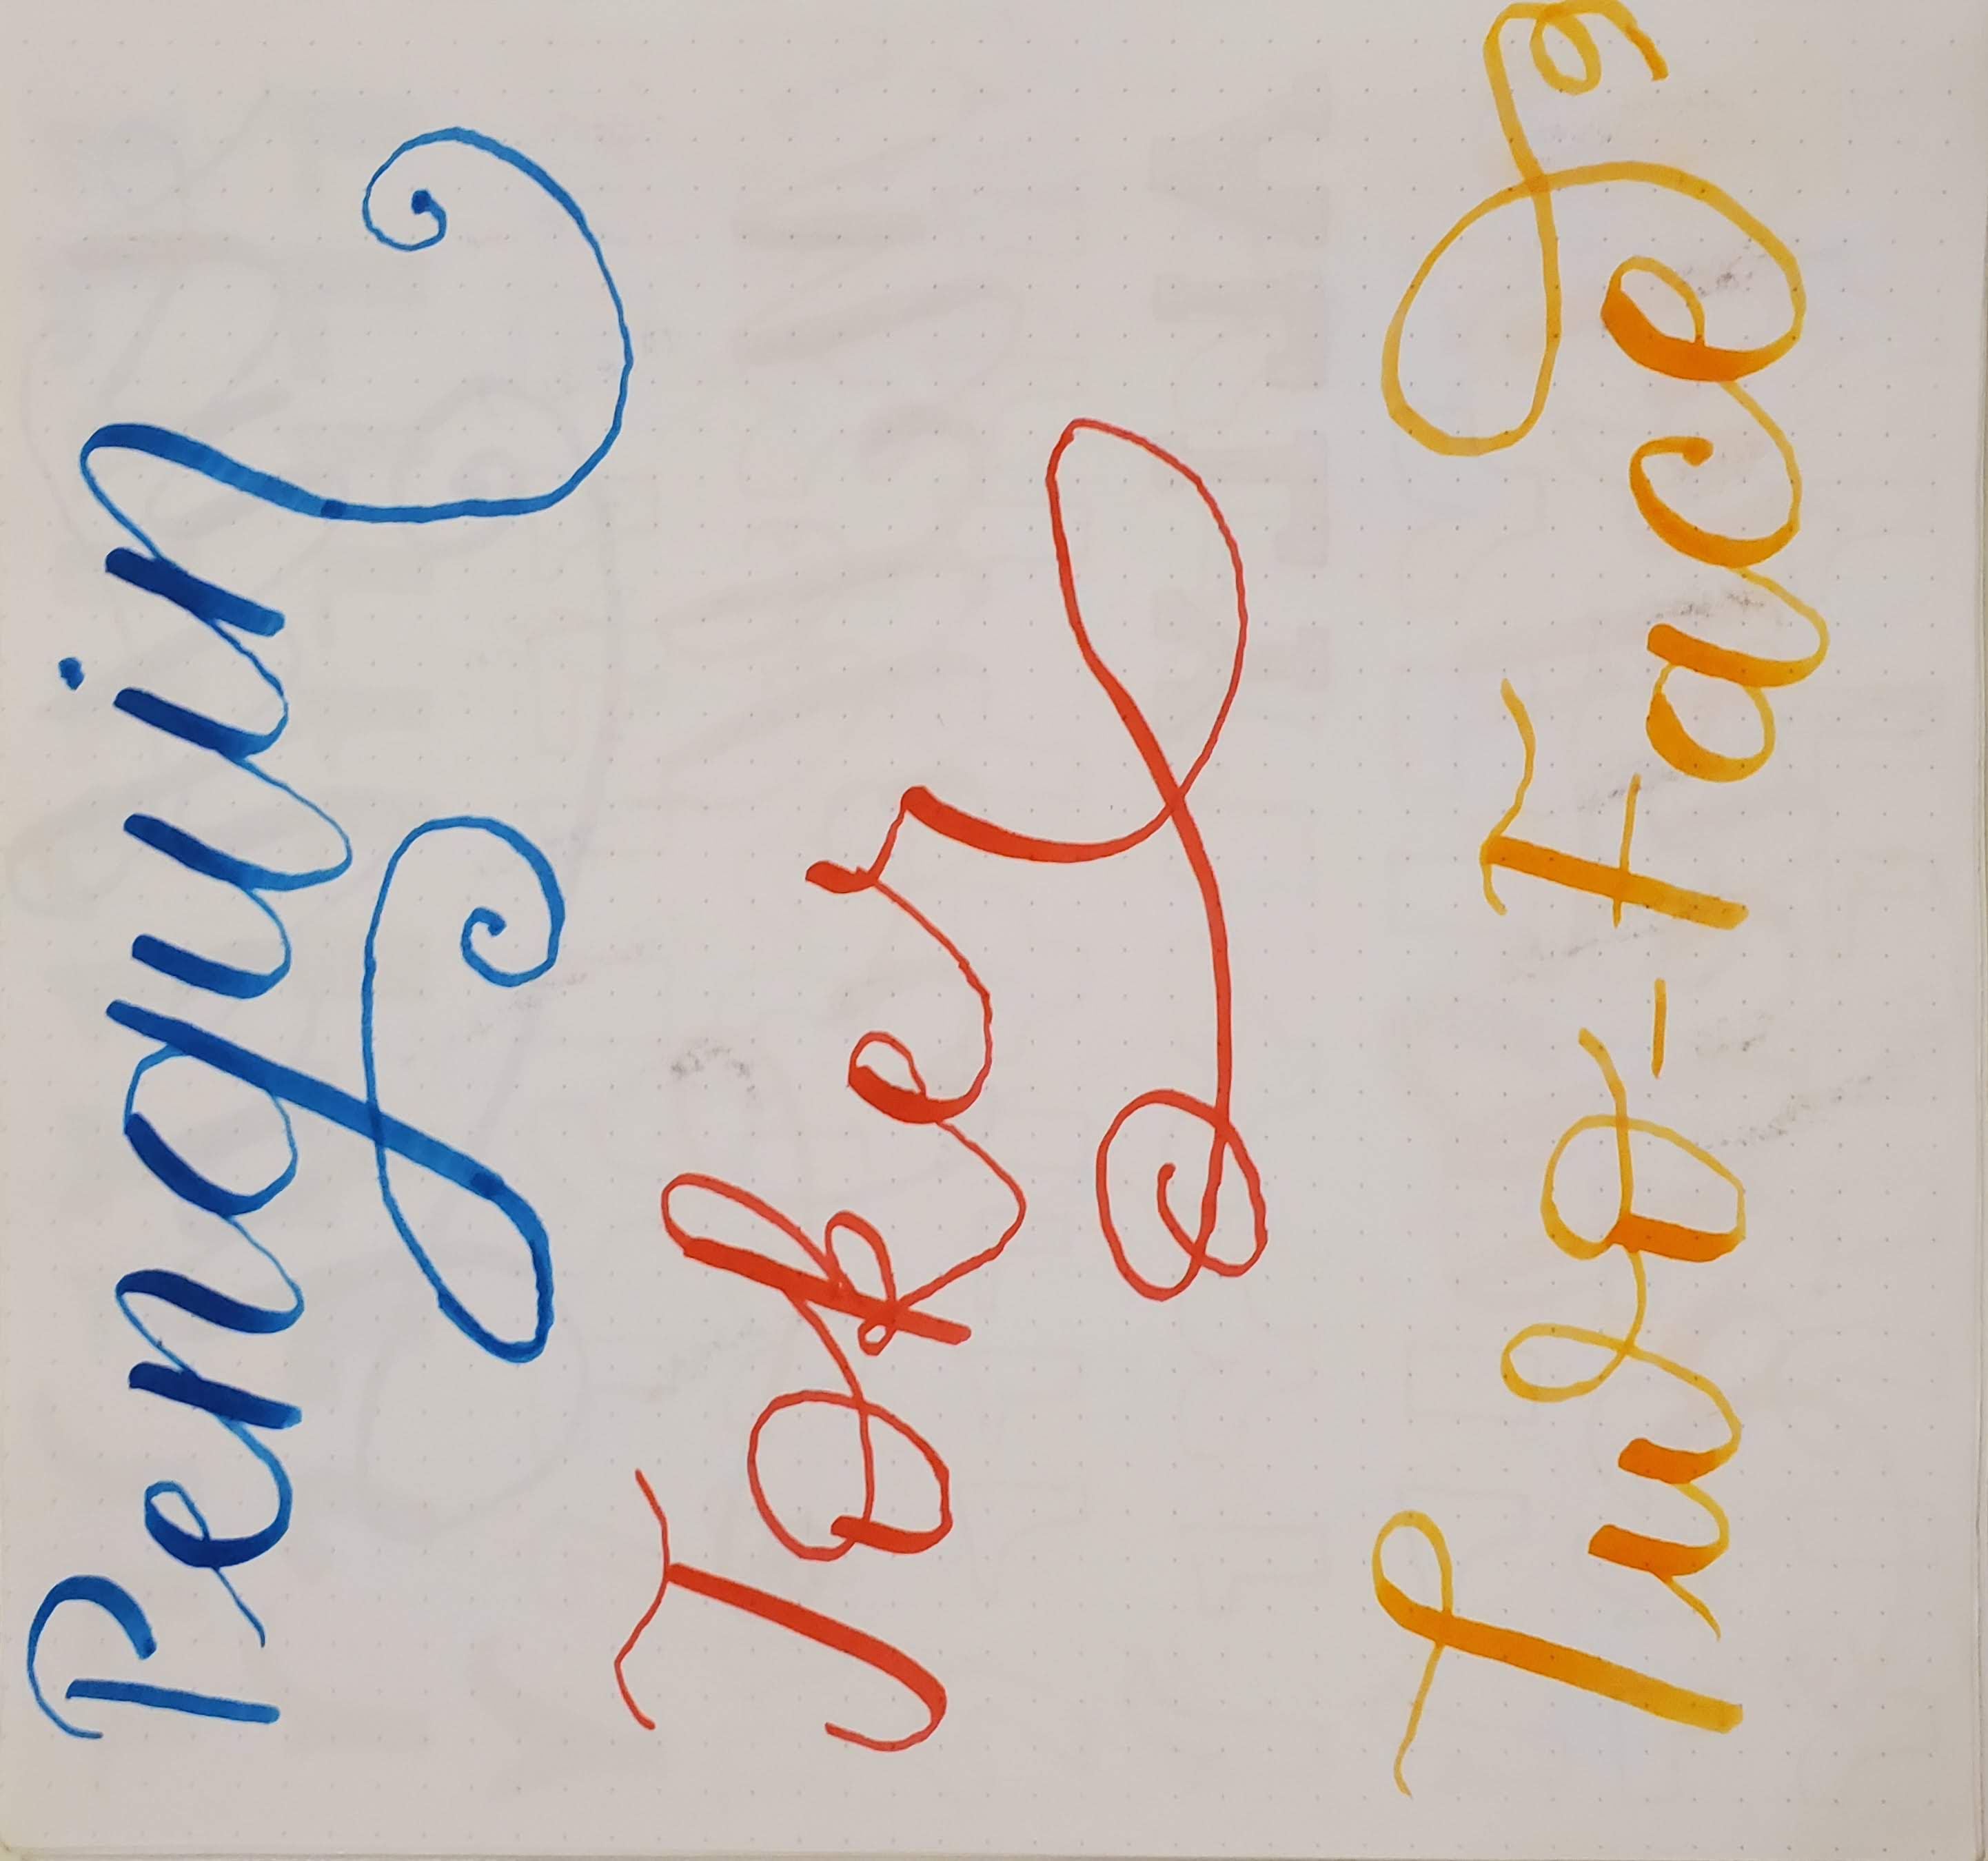 Penguin
Joker
Two-Face